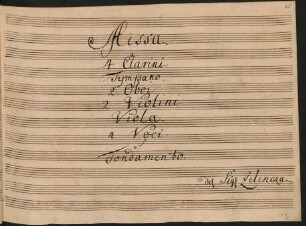 Missa.
4 Clarini.
Tympano.
2 Oboi
2 Violini
Viola.
4 Voci
Fondamento.
del Sigr Zelencka